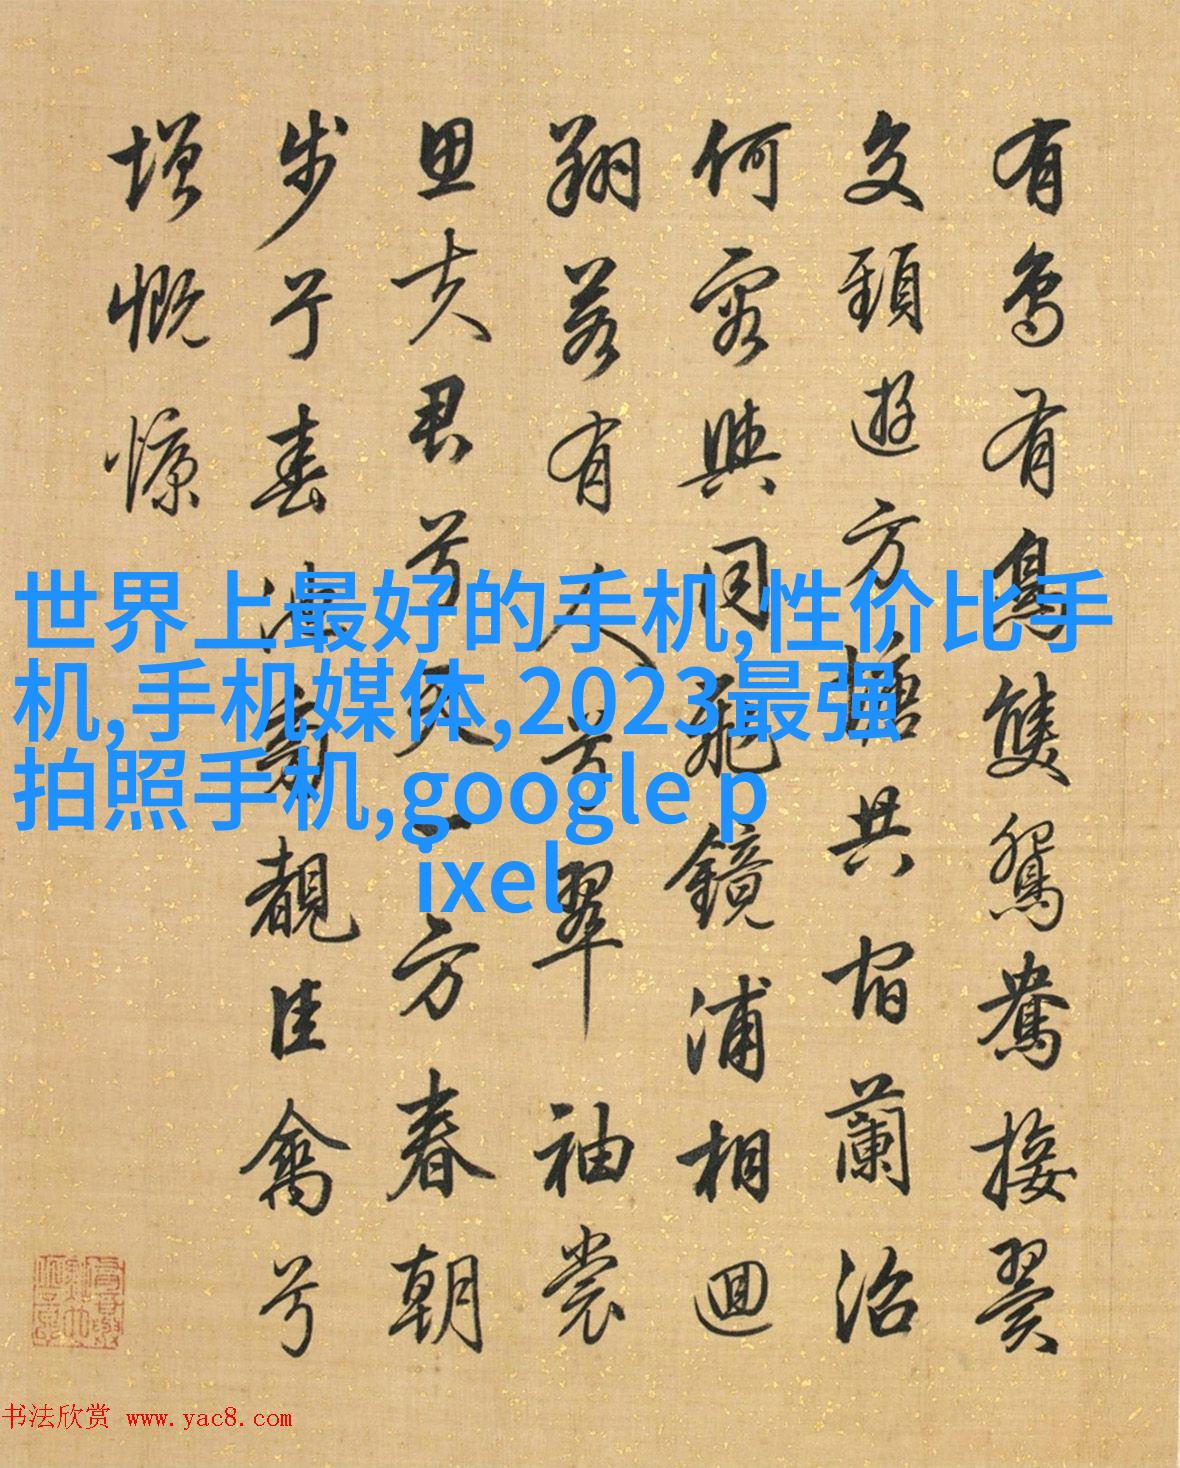 有鳥有鳥雙鴛鴦接翼
交頸遊方塘共宿蘭沼
何容與同飛鏡浦相迴
翔若有人兮翠袖裳
思夫君兮天一方春朝
步于春旁覩佳禽兮
增慨慷
世界上最好的手机,性价比手
机,手机媒体,2023最强
拍照手机,google p
ixel
书法欣赏 www.yac8.com